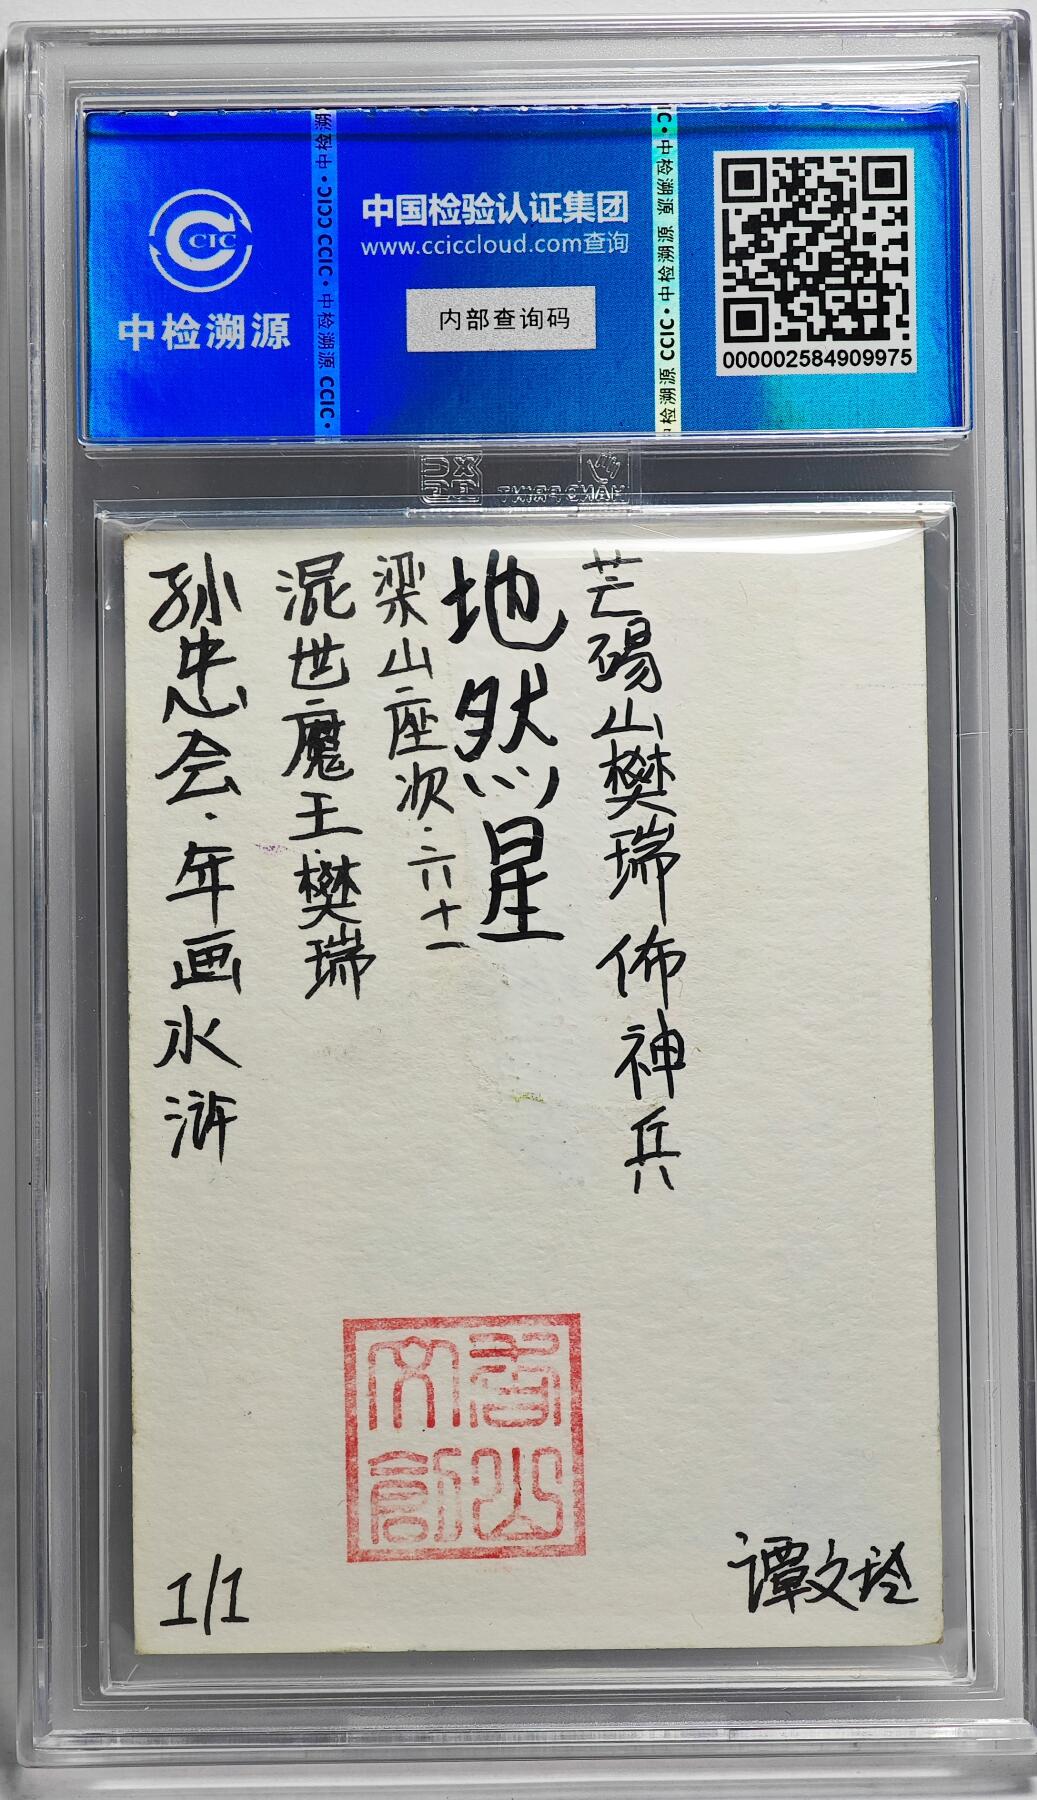 中检溯源
CCIC
中检溯源 CCIC · 中检溯源 CCIC
中国检验认证集团
www.cciccloud.com查询
内部查询码
中检溯源 CCIC · 中检溯源
000002584909975
HAND PRINT
芒砀山樊瑞佈神兵
地然星
梁山座次·六十一
混世魔王·樊瑞
孙忠会·年画水浒
香山文创
1/1
谭文玲